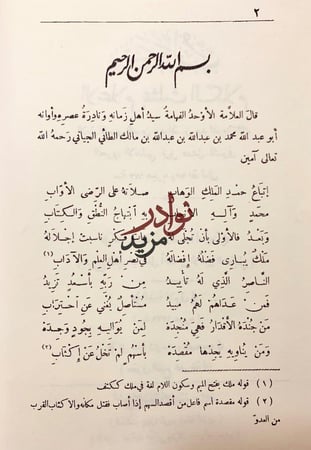 ٢
بسم الله الرحمن الرحيم
قال العلامة الأوحد الفهامة سيد أهل زمانه ونادرة عصره وأوانه
أبو عبد الله محمد بن عبدالله بن عبدالله بن مالك الطائي الجياني رحمه الله
تعالى آمين
إتباع حمد الملك الوهاب صلاته على الرضى الأواب
محمد وآله ابتهاج النطق والكتاب
وبعد فالأولى بأن تجلى له فكر ناسبت إجلاله
ملك يبارى فضله إفضاله في نصر أهل العلم والآداب (١)
الناصر الذي له تأييد من ربه بأسعد تزيد
فمن عداهم لهم مبيد مستأصل يغني عن احتراب
من جنده الأقدار فهي منجدة لمن يواليه بجود وجدة
ومن يناويه يجدها مقصدة بأسهم لم تخل عن إكثاب (٢)
نوادر
مزيد
(١) قوله ملك بفتح الميم وسكون اللام لغة في ملك ككتف
(٢) قوله مقصدة اسم فاعل من أقصد السهم إذا أصاب فقتل مكانه والاكثاب القرب
من العدو